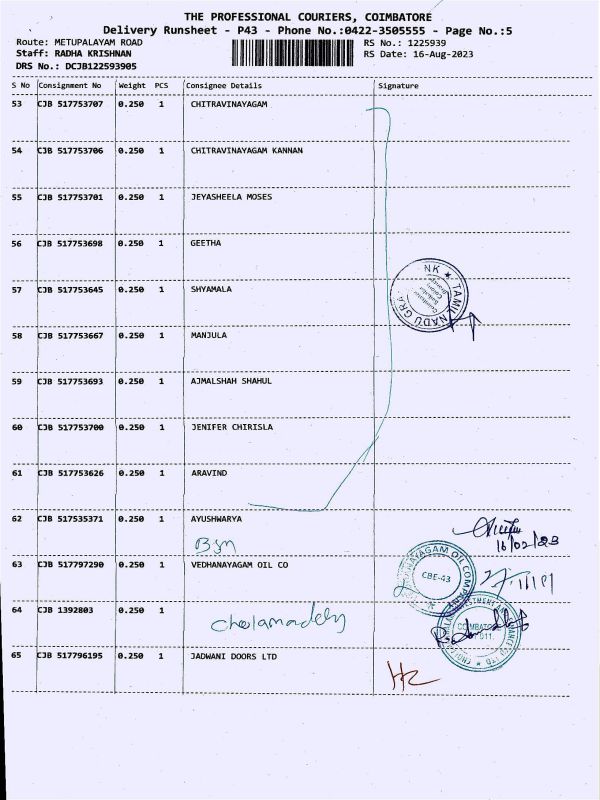 THE PROFESSIONAL COURIERS, COIMBATORE
Delivery Runsheet - P43 - Phone No.:0422-3505555 - Page No.:5
Route: METUPALAYAM ROAD
Staff: RADHA KRISHNAN
DRS No.: DCJB122593905
RS No.: 1225939
RS Date: 16-Aug-2023
S No Consignment No Weight PCS Consignee Details Signature
53 CJB 517753707 0.250 1 CHITRAVINAYAGAM
54 CJB 517753706 0.250 1 CHITRAVINAYAGAM KANNAN
55 CJB 517753701 0.250 1 JEYASHEELA MOSES
56 CJB 517753698 0.250 1 GEETHA
57 CJB 517753645 0.250 1 SHYAMALA
NK ★ TAMIL NADU GRA
58 CJB 517753667 0.250 1 MANJULA
59 CJB 517753693 0.250 1 AJMALSHAH SHAHUL
60 CJB 517753700 0.250 1 JENIFER CHIRISLA
61 CJB 517753626 0.250 1 ARAVIND
62 CJB 517535371 0.250 1 AYUSHWARYA
63 CJB 517797290 0.250 1 VEDHANAYAGAM OIL CO
NAYAGAM OIL COMPANY
CBE-43
64 CJB 1392803 0.250 1
COIMBATORE
65 CJB 517796195 0.250 1 JADWANI DOORS LTD